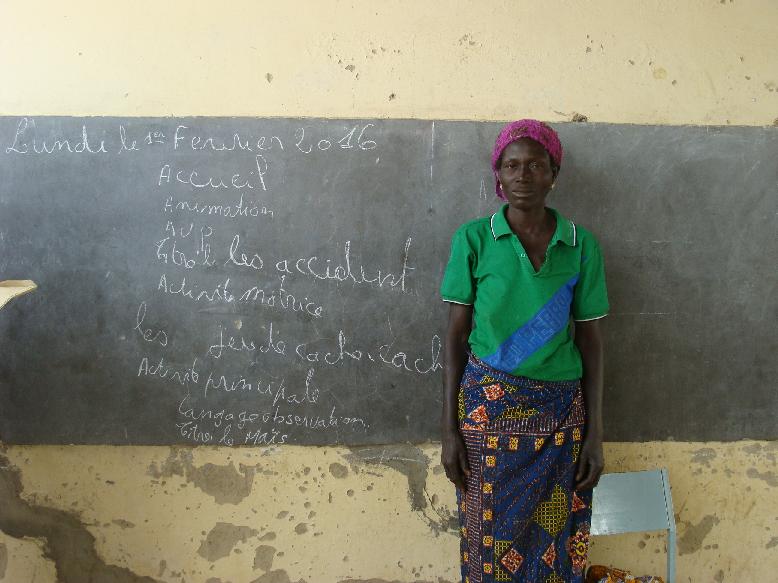 Lundi le 1er Fevrier 2016
Accueil
Animation
AVP
Titre: les accident
Activite motrice
les jeu de cache cach
Activite principale
Langage observation
Titre: le Maïs